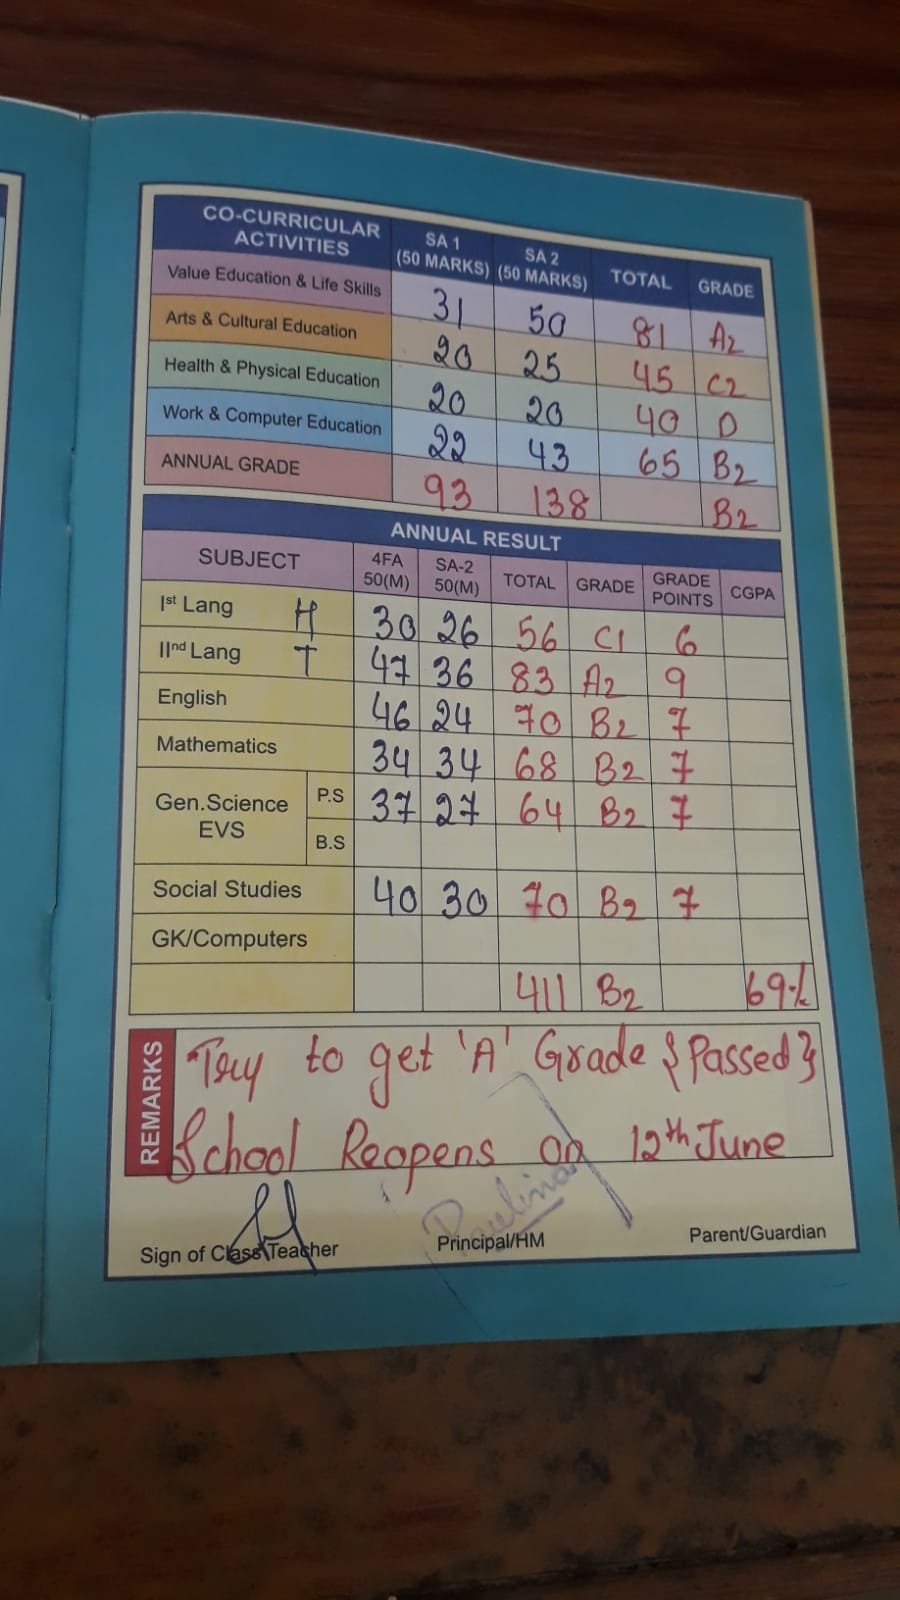 CO-CURRICULAR ACTIVITIES SA 1 (50 MARKS) SA 2 (50 MARKS) TOTAL GRADE
Value Education & Life Skills 31 50 81 A2
Arts & Cultural Education 20 25 45 C2
Health & Physical Education 20 20 40 D
Work & Computer Education 22 43 65 B2
ANNUAL GRADE 93 138 B2
ANNUAL RESULT
SUBJECT 4FA 50(M) SA-2 50(M) TOTAL GRADE GRADE POINTS CGPA
Ist Lang H 30 26 56 C1 6
IInd Lang T 47 36 83 A2 9
English 46 24 70 B2 7
Mathematics 34 34 68 B2 7
Gen.Science EVS P.S 37 27 64 B2 7
B.S
Social Studies 40 30 70 B2 7
GK/Computers
411 B2 69%
REMARKS
Try to get 'A' Grade {Passed}
School Reopens on 12th June
Paulina
Sign of Class Teacher Principal/HM Parent/Guardian